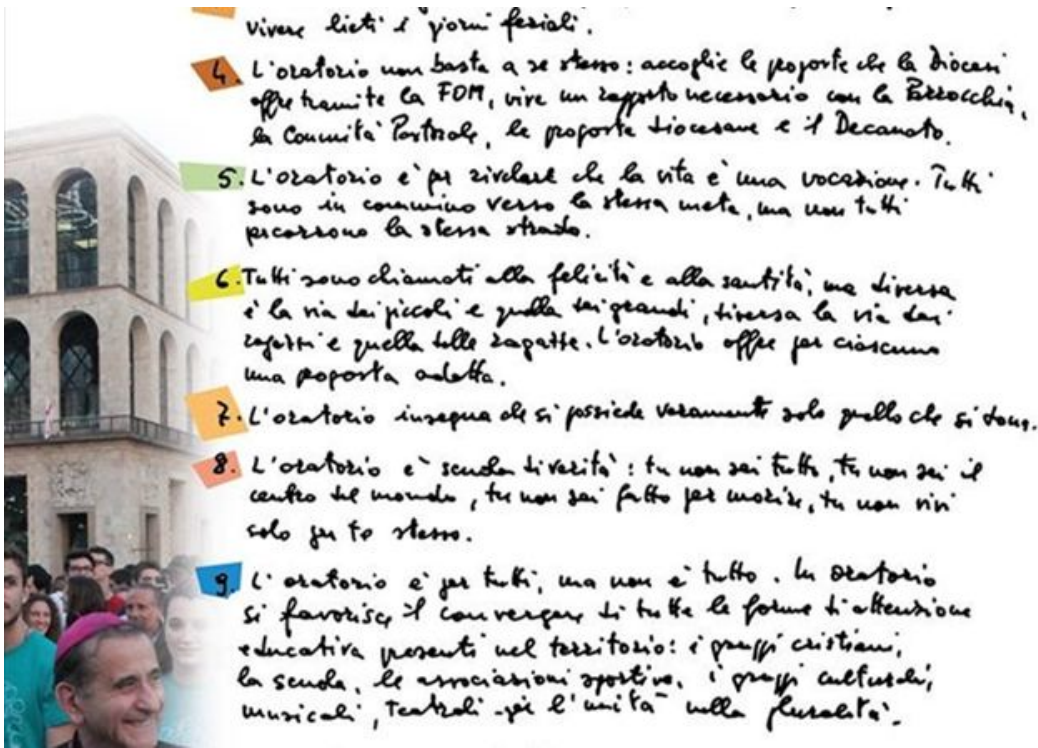 vivere lieti i giorni feriali.
4. L'oratorio non basta a se stesso: accoglie le proposte che la Diocesi
offre tramite la FOM, vive un rapporto necessario con la Parrocchia,
la Comunità Pastorale, le proposte diocesane e il Decanato.
5. L'oratorio è per rivelare che la vita è una vocazione. Tutti
sono in cammino verso la stessa meta, ma non tutti
percorrono la stessa strada.
6. Tutti sono chiamati alla felicità e alla santità, ma diversa
è la via dei piccoli e quella dei grandi, diversa la via dei
ragazzi e quella delle ragazze. L'oratorio offre per ciascuno
una proposta adatta.
7. L'oratorio insegna che si possiede veramente solo quello che si dona.
8. L'oratorio è scuola di verità: tu non sei tutto, tu non sei il
centro del mondo, tu non sei fatto per morire, tu non vivi
solo per te stesso.
9. L'oratorio è per tutti, ma non è tutto. In oratorio
si favorisce il convergere di tutte le forme di attenzione
educativa presenti nel territorio: i gruppi cristiani,
la scuola, le associazioni sportive, i gruppi culturali,
musicali, teatrali per l'unità nella pluralità.